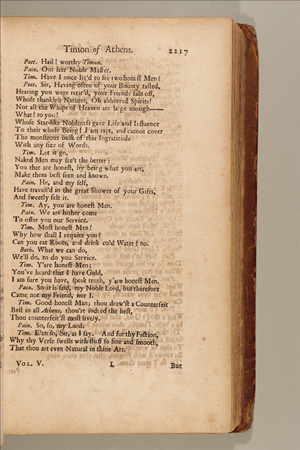 Timon of Athens. 2217
Poet. Hail! worthy Timon.
Pain. Our late Noble Master.
Tim. Have I once liv'd to see two honest Men?
Poet. Sir, Having often of your Bounty tasted,
Hearing you were retir'd, your Friends faln off,
Whose thankless Natures, Oh abhorred Spirits!
Not all the Whips of Heaven are large enough——
What! to you!
Whose Star-like Nobleness gave Life and Influence
To their whole Being! I am rapt, and cannot cover
The monstrous bulk of this Ingratitude
With any size of Words.
Tim. Let it go,
Naked Men may see't the better:
You that are honest, by being what you are,
Make them best seen and known.
Pain. He, and my self,
Have travell'd in the great Shower of your Gifts,
And sweetly felt it.
Tim. Ay, you are honest Men.
Pain. We are hither come
To offer you our Service.
Tim. Most honest Men!
Why how shall I requite you?
Can you eat Roots, and drink cold Water? no.
Both. What we can do,
We'll do, to do you Service.
Tim. Y'are honest Men;
You've heard that I have Gold,
I am sure you have, speak truth, y'are honest Men.
Pain. So it is said, my Noble Lord, but therefore
Came not my Friend, nor I.
Tim. Good honest Man; thou draw'st a Counterfeit
Best in all Athens, thou'rt indeed the best,
Thou counterfeit'st most lively.
Pain. So, so, my Lord.
Tim. E'en so, Sir, as I say. And for thy Fiction,
Why thy Verse swells with stuff so fine and smooth,
That thou art even Natural in thine Art.
VOL. V. L But